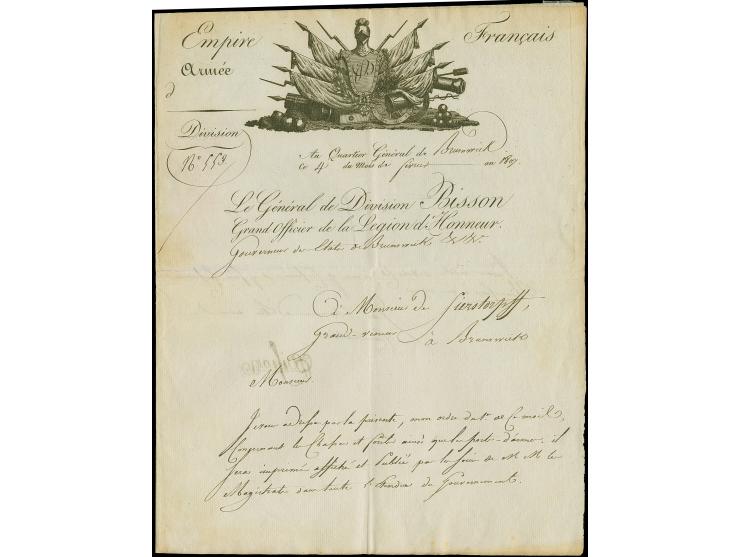 Empire Français
Armée
d
Division
N° 553.
Au Quartier Général de Brunswick
ce 4 du Mois de fevrier an 1807.
Le Général de Division Bisson
Grand Officier de la Legion d'Honneur.
Gouverneur des Etats de Brunswick
à Monsieur de Sierstorpff,
Grand-veneur à Brunswick
Monsieur
Je vous adresse par la présente, mon ordre du 1er de ce mois,
Concernant la Chasse et ainsi que le port-d'armes. il
sera imprimé affiché et publié par les soins de M M les
Magistrats dans toute l'Etendue du Gouvernement.